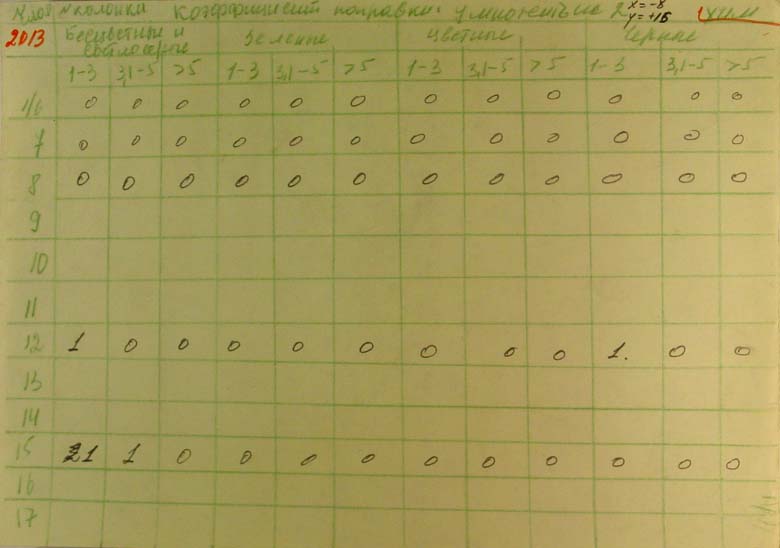 N колонки Коэффициент поправки: умножить на 2 x=-8 y=+15
2013 Бесцветные и Зеленые Цветные Черные
1-3 3,1-5 >5 1-3 3,1-5 >5 1-3 3,1-5 >5 1-3 3,1-5 >5
0 0 0 0 0 0 0 0 0 0 0 0
7 0 0 0 0 0 0 0 0 0 0 0 0
8 0 0 0 0 0 0 0 0 0 0 0 0
9
10
11
12 1 0 0 0 0 0 0 0 0 1. 0 0
13
14
15 1 1 0 0 0 0 0 0 0 0 0 0
16
17